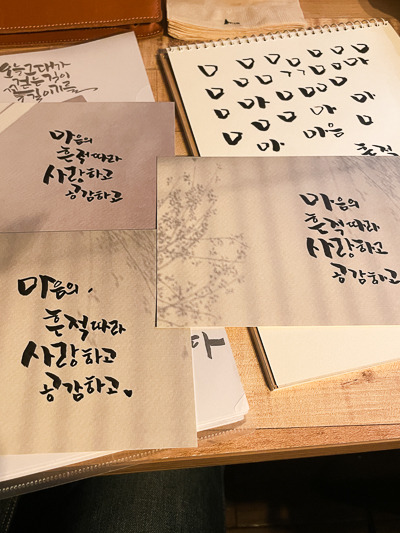 오늘 그대가
걷는 것이
꽃길이기를
마음의
흔적따라
사랑하고
공감하고
마음의
흔적따라
사랑하고
공감하고
마음의
흔적따라
사랑하고
공감하고
ㅁ ㅁ ㅁ ㅁ ㅁ ㅁ
ㅁ ㅁ ㄱ ㄱ ㅁ ㅁ 마
ㅁ ㅁ ㅁ ㅁ ㅁ
ㅁ 마 ㅁ ㅁ 마
ㅁ ㅁ ㅁ 마
ㅁ 마 마음
흔적
다